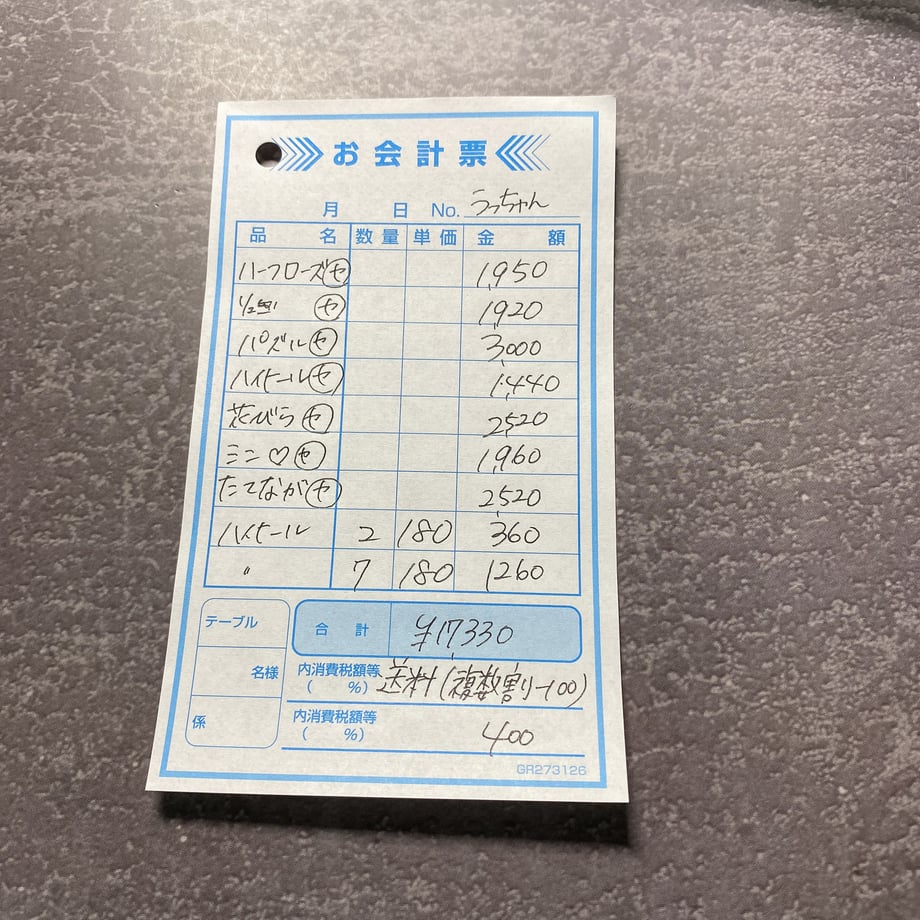 お会計票
月 日 No. うっちゃん
品名 数量 単価 金額
ハーフローズ㋳ 1,950
1/2無 ㋳ 1,920
パズル㋳ 3,000
ハイドール㋳ 1,440
花びら㋳ 2,520
ミニ♡㋳ 1,960
たてなが㋳ 2,520
ハイドール 2 180 360
〃 7 180 1260
テーブル
名様
係
合計 ¥17,330
内消費税額等 ( %) 送料(複数割-100)
内消費税額等 ( %) 400
GR273126